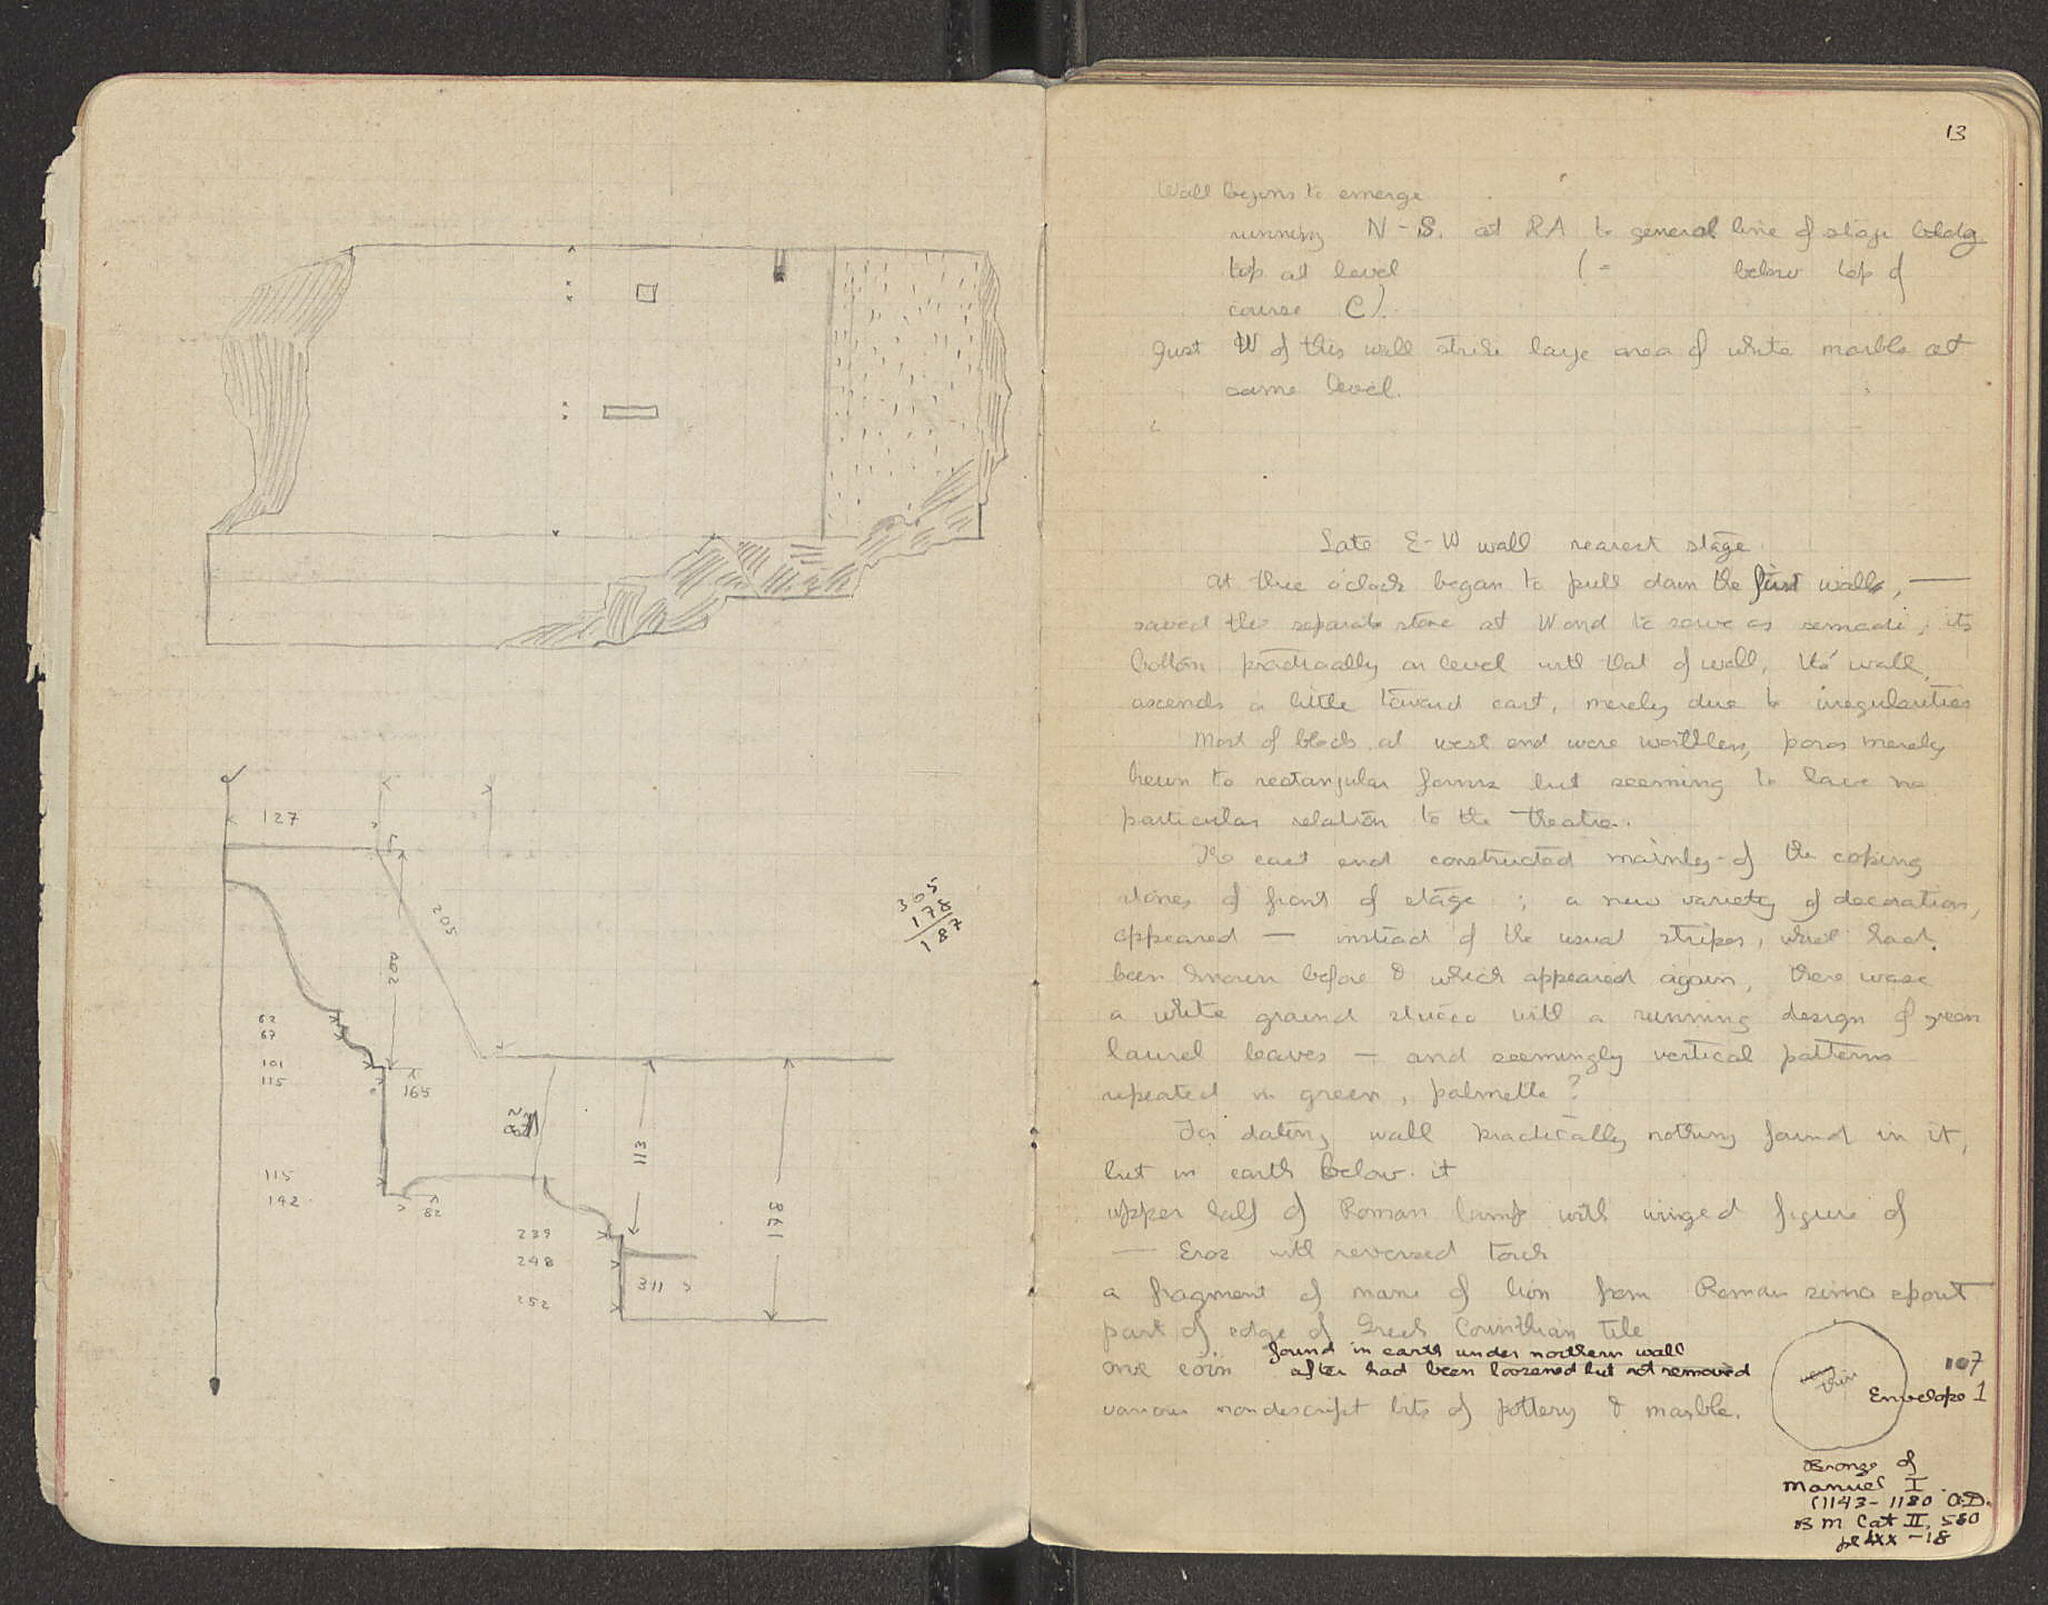 127
205
202
305
178
187
62
67
101
115
165
115
142
82
113
178
239
248
252
311
13
Wall begins to emerge
running N-S. at RA to general line of stage bldg
top at level (= below top of
course C).
Just W of this wall strike large area of white marble at
same level.
Late E-W wall nearest stage
At three o'clock began to pull down the first wall, —
saved the separate stone at W end to serve as semadi, its
bottom practically on level with that of wall, the wall
ascends a little toward east, merely due to irregularities
Most of blocks at west end were worthless, poros merely
hewn to rectangular forms but seeming to have no
particular relation to the theatre.
The east end constructed mainly of the coping
stones of front of stage; a new variety of decoration,
appeared — instead of the usual stripes, which had
been known before & which appeared again, there was
a white ground stucco with a running design of green
laurel leaves — and seemingly vertical patterns
repeated in green, palmette?
For dating wall practically nothing found in it,
but in earth below it
upper half of Roman lamp with winged figure of
— Eros with reversed torch
a fragment of mane of lion from Roman sima spout
part of edge of Greek Corinthian tile
one coin found in earth under northern wall
after had been loosened but not removed
very thin
107
Envelope 1
various nondescript bits of pottery & marble.
Bronze of
Manuel I
(1143-1180 A.D.
B M Cat II, 580
pl LXX -18